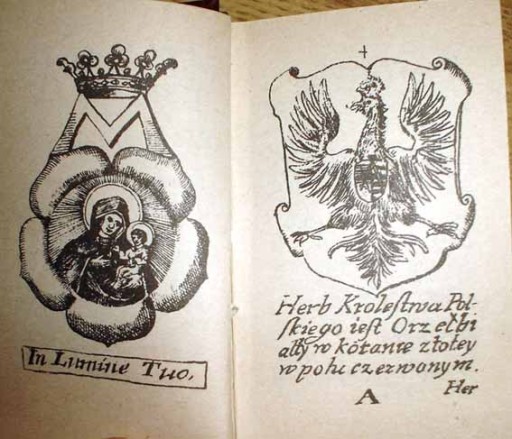 In Lumine Tuo.
Herb Krolestwa Pol-
skiego iest Orzeł bi
ały w kŏtanie złotey
w polu czerwonym.
Her
A